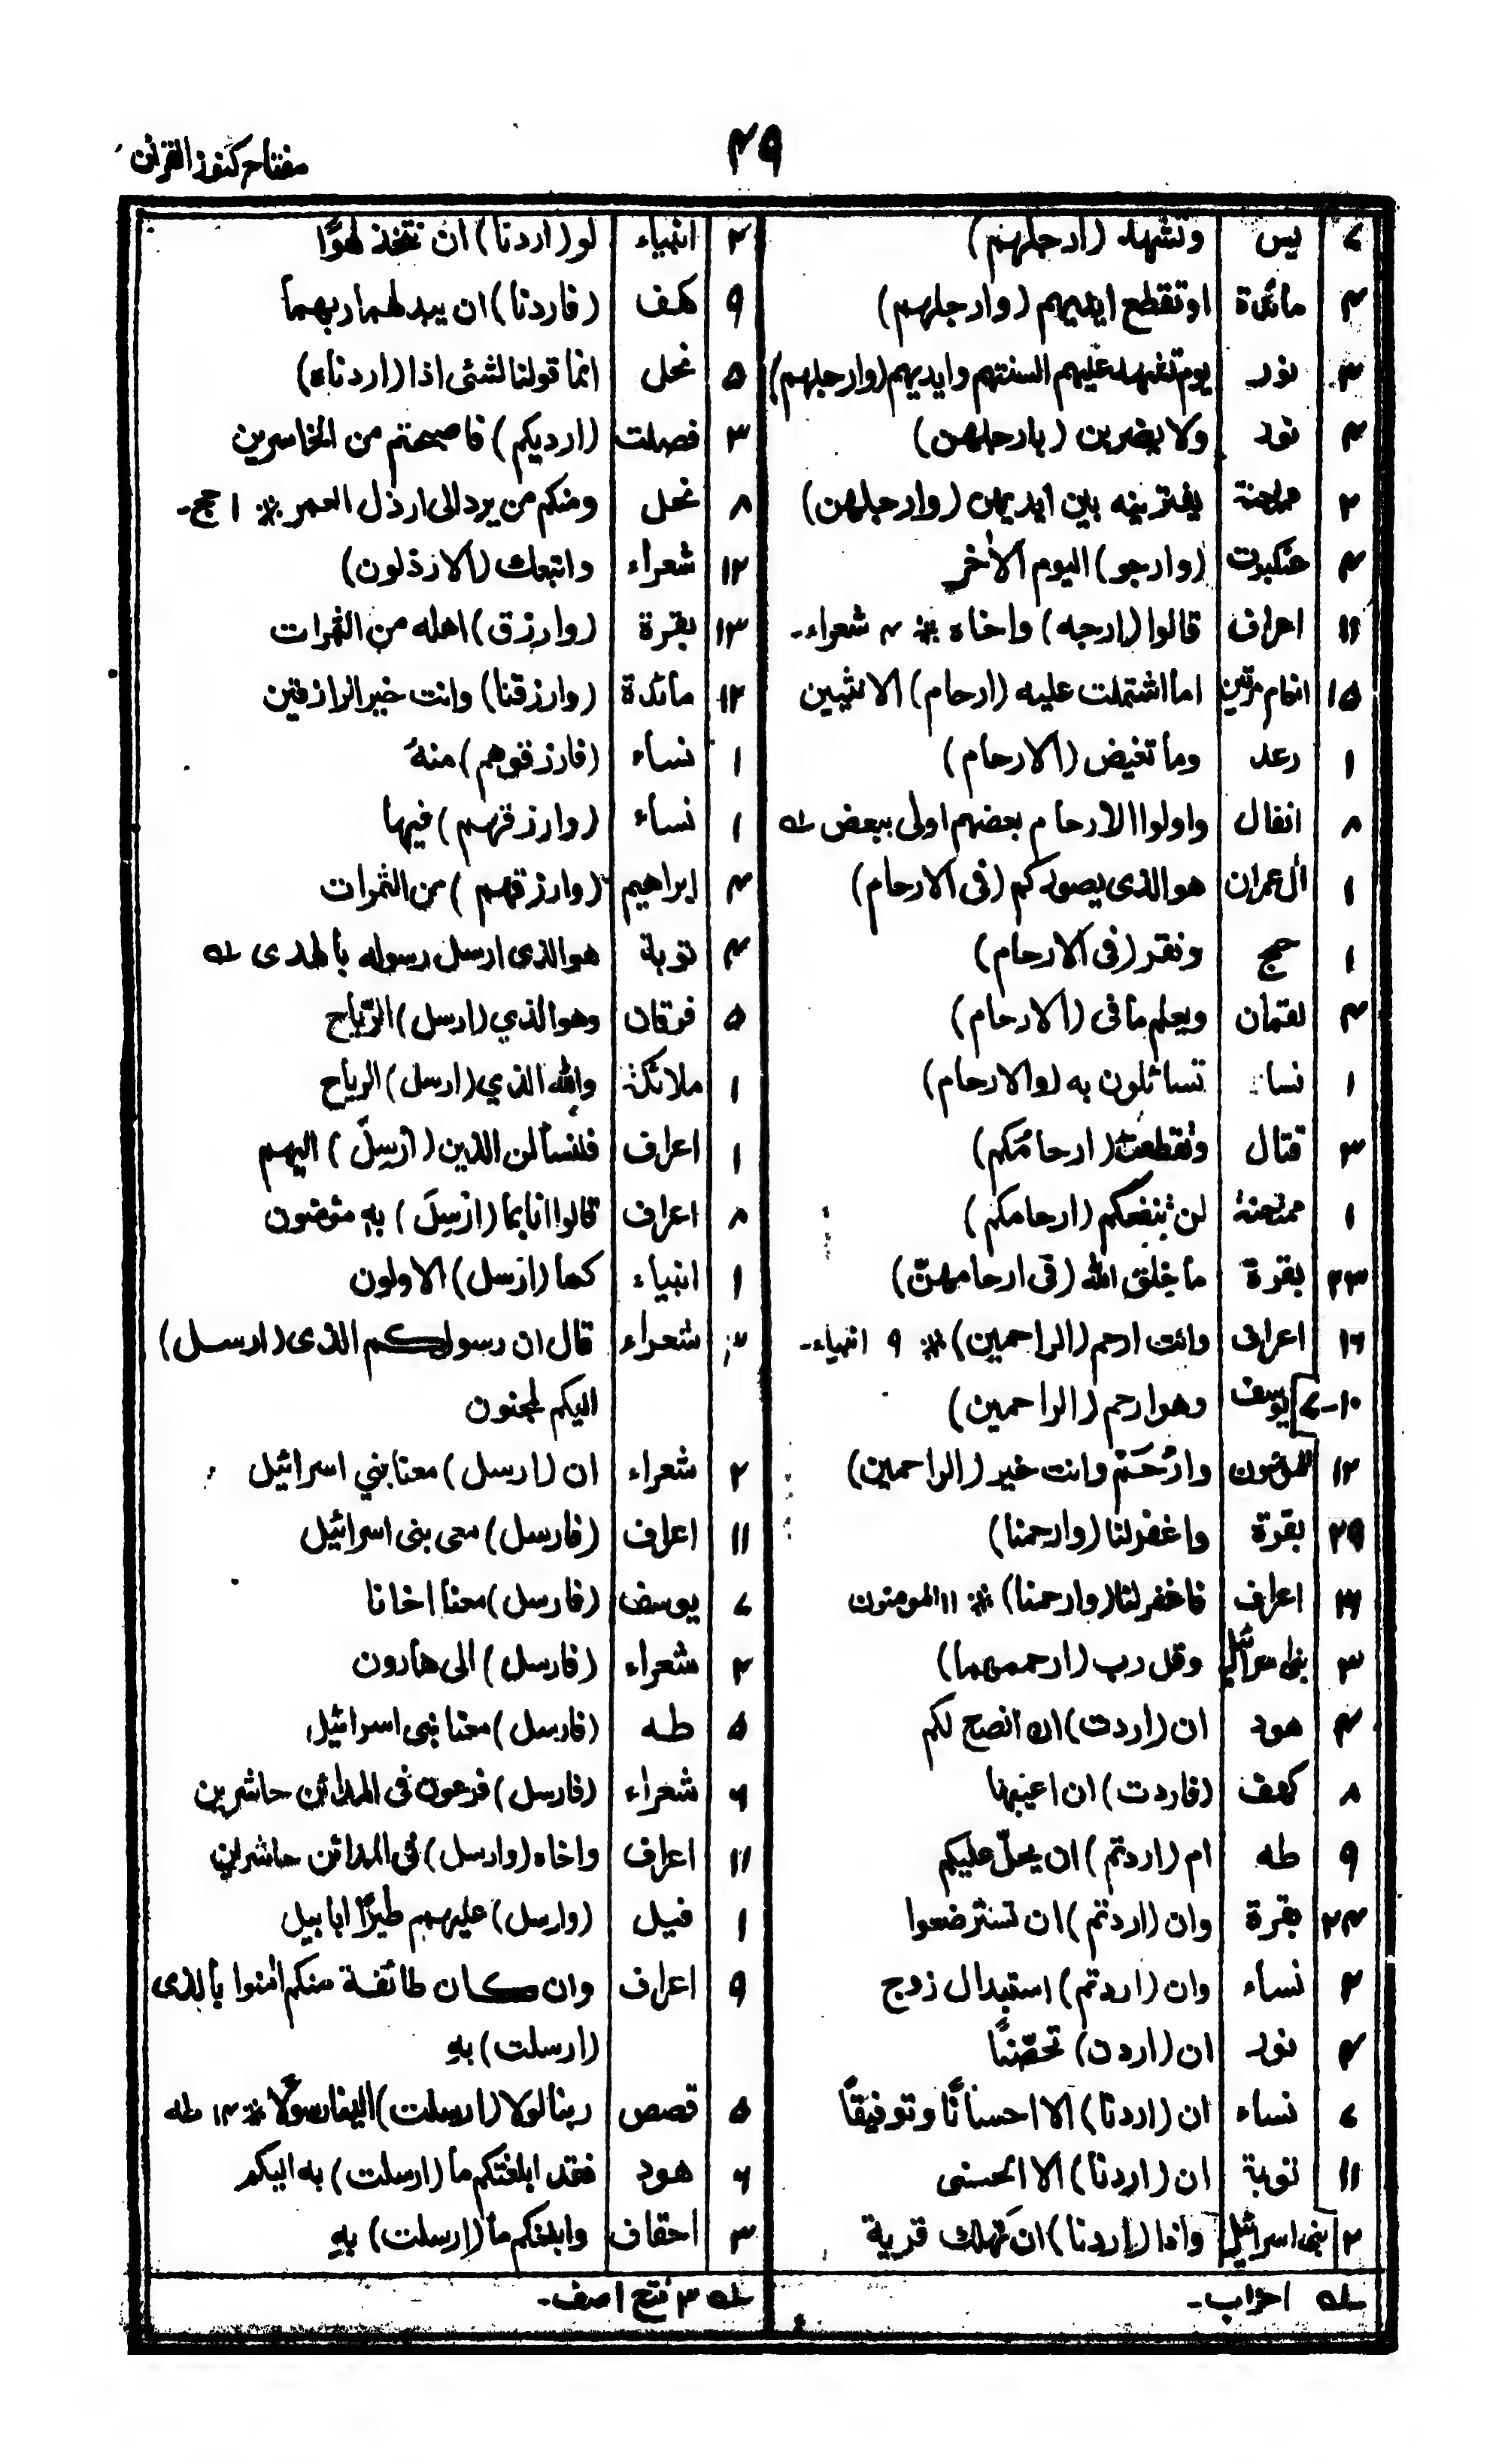 ۴۹
مفتاح کنوز القرآن
۴ یس وتشهد (ارجلهم)
۴ مائدة اوتقطع ایدیهم (وارجلهم)
۳ نور یوم تشهد علیهم السنتهم وایدیهم (وارجلهم)
۴ نور ولا یضربن (بارجلهن)
۲ ممتحنة یفترینه بین ایدیهن (وارجلهن)
۴ عنکبوت (وارجو) الیوم الاٰخر
۱۱ اعراف قالوا (ارجه) واخاه ※ ۳ شعراء۔
۱۵ انعام مرتین اما اشتملت علیه (ارحام) الانثیین
۱ رعد وما تغیض (الارحام)
۸ انفال واولوا الارحام بعضهم اولی ببعض ؎
۱ اٰل عمران هوالذی یصورکم (فی الارحام)
۱ حج ونقر (فی الارحام)
۴ لقمان ویعلم ما فی (الارحام)
۱ نساء تسائلون به (والارحام)
۳ قتال وتقطعوا (ارحامکم)
۱ ممتحنة لن تنفعکم (ارحامکم)
۲۳ بقرة ما خلق الله (فی ارحامهنّ)
۱۶ اعراف وانت ارحم (الراحمین) ※ ۹ انبیاء۔
۱۰-۷ یوسف وهو ارحم (الراحمین)
۱۲ المؤمنون وارْحَمْ وانت خیر (الراحمین)
۲۹ بقرة واغفرلنا (وارحمنا)
۱۹ اعراف فاغفرلنا (وارحمنا) ※ ۱۱ المومنون
۳ بنی اسرائیل وقل رب (ارحمهما)
۴ هود ان (اردت) ان انصح لکم
۸ کهف (فاردت) ان اعیبها
۹ طه ام (اردتم) ان یحلّ علیکم
۲۴ بقرة وان (اردتم) ان تسترضعوا
۲ نساء وان (اردتم) استبدال زوج
۴ نور ان (اردن) تحصّنًا
۷ نساء ان (اردنا) الا احسانًا وتوفیقًا
۱۱ توبة ان (اردنا) الا الحسنی
۲ بنی اسرائیل واذا (اردنا) ان نهلك قریة
؎ احزاب۔
۲ انبیاء لو (اردنا) ان نتخذ لهوًا
۹ کهف (فاردنا) ان یبدلهما ربهما
۵ نحل انما قولنا لشئی اذا (اردناه)
۳ فصلت (اردیکم) فاصبحتم من الخاسرین
۸ نحل ومنکم من یرد الی ارذل العمر ※ ۱ حج۔
۱۲ شعراء واتبعك (الارذلون)
۱۳ بقرة (وارزق) اهله من الثمرات
۱۲ مائدة (وارزقنا) وانت خیر الرازقین
۱ نساء (فارزقوهم) منهُ
۱ نساء (وارزقوهم) فیها
۴ ابراهیم (وارزقهم) من الثمرات
۴ توبة هوالذی ارسل رسوله بالهدی ؎
۵ فرقان وهوالذي (ارسل) الرّیاح
۱ ملائکة والله الذي (ارسل) الریاح
۱ اعراف فلنسألن الذین (اُرْسِلَ) الیهم
۸ اعراف قالوا انا بما (اُرْسِلَ) بهٖ مؤمنون
۱ انبیاء کما (اُرسل) الاولون
۲ شعراء قال ان رسولکم الذی (ارسل)
الیکم لمجنون
۲ شعراء ان (ارسل) معنا بني اسرائیل
۱۱ اعراف (فارسل) معی بنی اسرائیل
۷ یوسف (فارسل) معنا اخانا
۲ شعراء (فارسل) الی هارون
۵ طه (فارسل) معنا بنی اسرائیل
۶ شعراء (فارسل) فرعون فی المدائن حاشرین
۱۱ اعراف واخاه (وارسل) فی المدائن حاشرین
۱ فیل (وارسل) علیهم طیرًا ابابیل
۹ اعراف وان کان طائفة منکم اٰمنوا بالذی
(ارسلت) بهٖ
۵ قصص ربنا لولا (ارسلت) الینا رسولًا ※ ۱۳ طه
۶ هود فقد ابلغتکم ما (ارسلت) به الیکم
۳ احقاف وابلغکم ما (ارسلت) بهٖ
؎ ۳ فتح ا صف۔